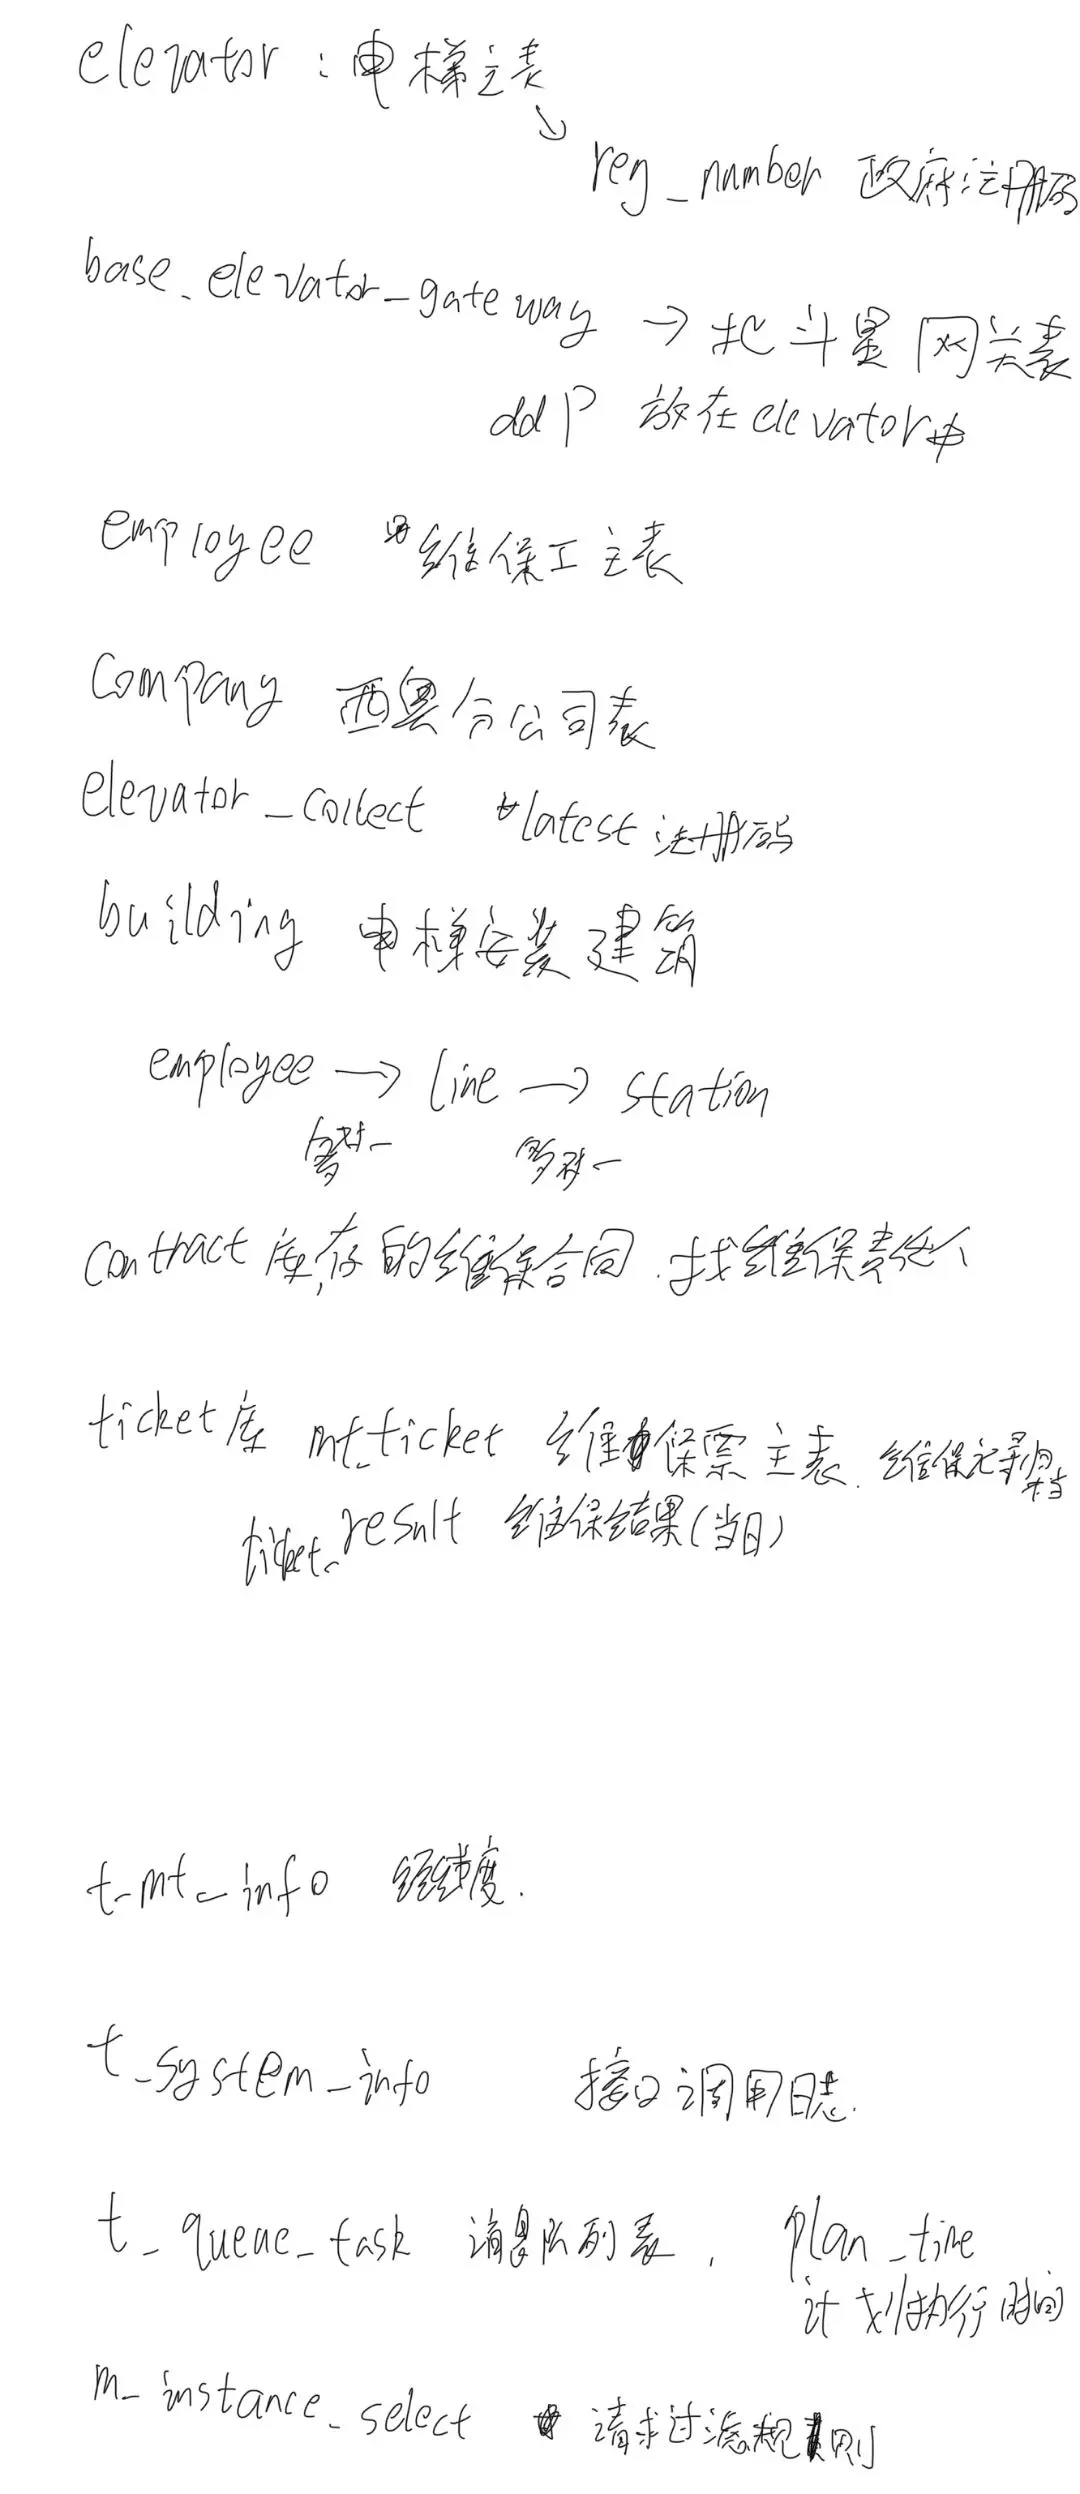 elevator : 电梯主表
↘ reg_number 政府注册码
base_elevator_gateway → 北斗星网关表
ddP 放在elevator中
employee 维保工主表
company 西奥分公司表
elevator_collect latest注册码
building 电梯安装建筑
employee → line → station
多对一 多对一
contract库,存的维保合同.找维保责任人
ticket库 mt_ticket 维保票主表.维保记录归档
ticket_result 维保结果(当日)
t_mt_info 经纬度.
t_system_info 接口调用日志.
t_queue_task 消息队列表, plan_time
计划执行时间
m_instance_select 请求过滤规则